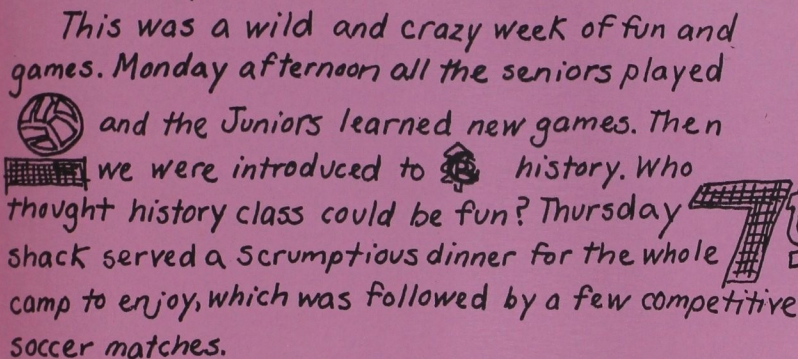 This was a wild and crazy week of fun and
games. Monday afternoon all the seniors played
and the Juniors learned new games. Then
we were introduced to history. Who
thought history class could be fun? Thursday 7
shack served a scrumptious dinner for the whole
camp to enjoy, which was followed by a few competitive
soccer matches.